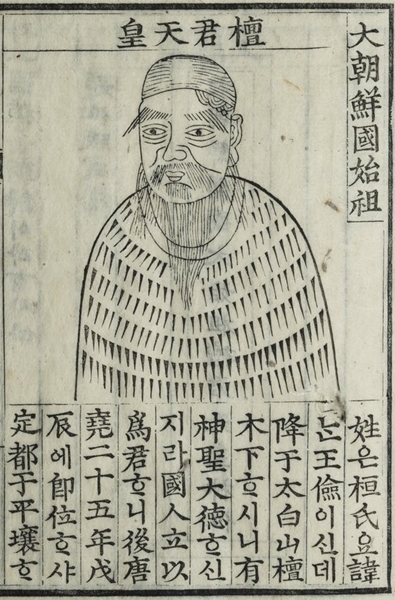 大朝鮮國始祖
檀君天皇
姓은桓氏요諱
ᄂᆞᆫ王儉이신데
降于太白山檀
木下ᄒᆞ시니有
神聖大德ᄒᆞ신
지라國人立以
爲君ᄒᆞ니後唐
堯二十五年戊
辰에卽位ᄒᆞ사
定都于平壤ᄒᆞ